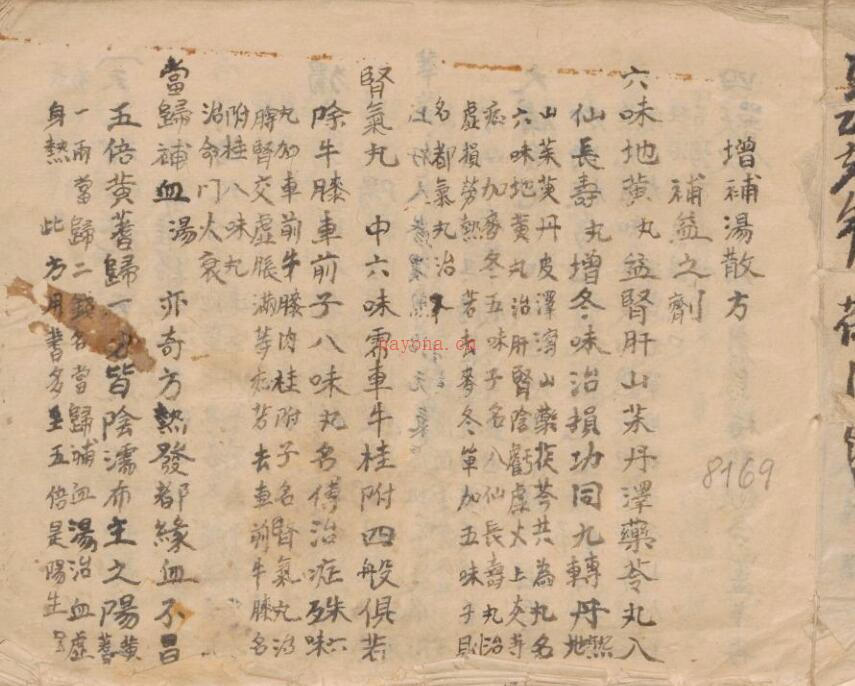 增補湯散方
補益之劑
六味地黃丸益腎肝山茱丹澤藥苓丸八
仙長壽丸增冬味治損功同九轉丹熟地
山茱萸丹皮澤瀉山藥茯苓共為丸名
六味地黃丸治肝腎陰虧虛火上炎等
症加麥冬五味子名八仙長壽丸治
虛損勞熱若去麥冬單加五味子則
名都氣丸治
腎氣丸 中六味需車牛桂附四般俱若
除牛膝車前子八味丸名傳治症殊六味
丸加車前牛膝肉桂附子名腎氣丸治
脾腎交虛脹滿等症若去車前牛膝名
附桂八味丸
治命門火衰
當歸補血湯 亦奇方熱發都緣血不昌
五倍黃蓍歸一皆陰濡布主之陽黃蓍
一兩當歸二錢名當歸補血湯治血虛
身熱 此方用蓍多至五倍是陽生
8169
nayona.cn